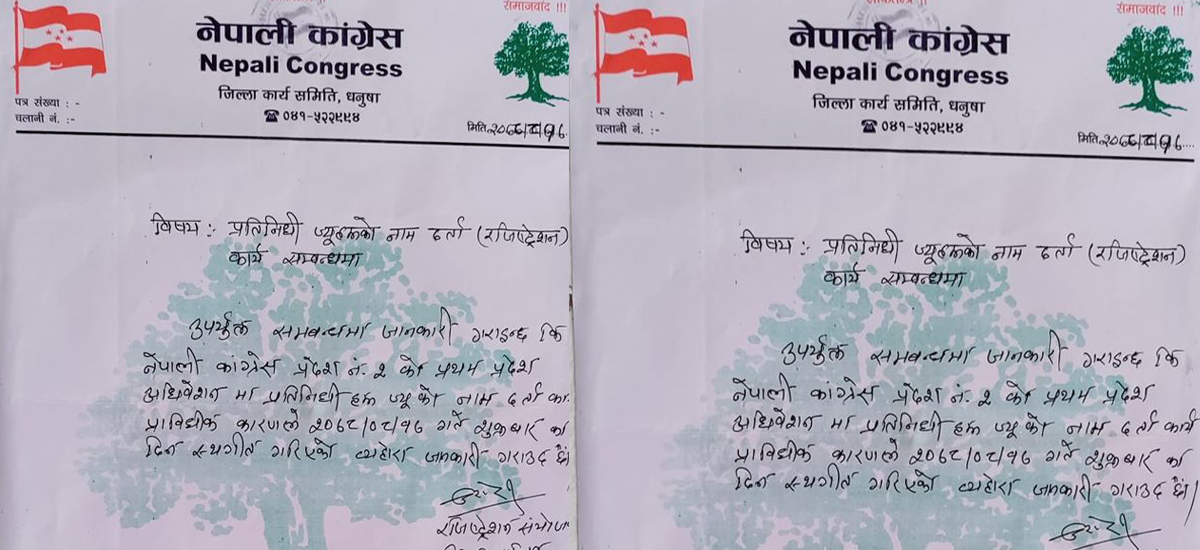 समाजवाद !!!
नेपाली कांग्रेस
Nepali Congress
जिल्ला कार्य समिति, धनुषा
☎ ०४१-५२२९९४
पत्र संख्या : -
चलानी नं. :-
मिति
विषय : प्रतिनिधी ज्यूहरूको नाम दर्ता (रजिष्ट्रेशन)
कार्य सम्बन्धमा
उपर्युक्त सम्बन्धमा जानकारी गराइन्छ कि
नेपाली कांग्रेस प्रदेश नं. २ को प्रथम प्रदेश
अधिवेशन मा प्रतिनिधी हरू ज्यू को नाम दर्ता का
प्राविधीक कारणले २०७८/०८/१७ गते शुक्रबार का
दिन स्थगीत गरिएको व्यहोरा जानकारी गराउद छौं
रजिष्ट्रेशन संयोज
समाजवाद !!!
नेपाली कांग्रेस
Nepali Congress
जिल्ला कार्य समिति, धनुषा
☎ ०४१-५२२९९४
पत्र संख्या : -
चलानी नं. :-
मिति
विषय : प्रतिनिधी ज्यूहरूको नाम दर्ता (रजिष्ट्रेशन)
कार्य सम्बन्धमा
उपर्युक्त सम्बन्धमा जानकारी गराइन्छ कि
नेपाली कांग्रेस प्रदेश नं. २ को प्रथम प्रदेश
अधिवेशन मा प्रतिनिधी हरू ज्यू को नाम दर्ता कार्य
प्राविधीक कारणले २०७८/०८/१७ गते शुक्रबार का
दिन स्थगीत गरिएको व्यहोरा जानकारी गराउद छौं।